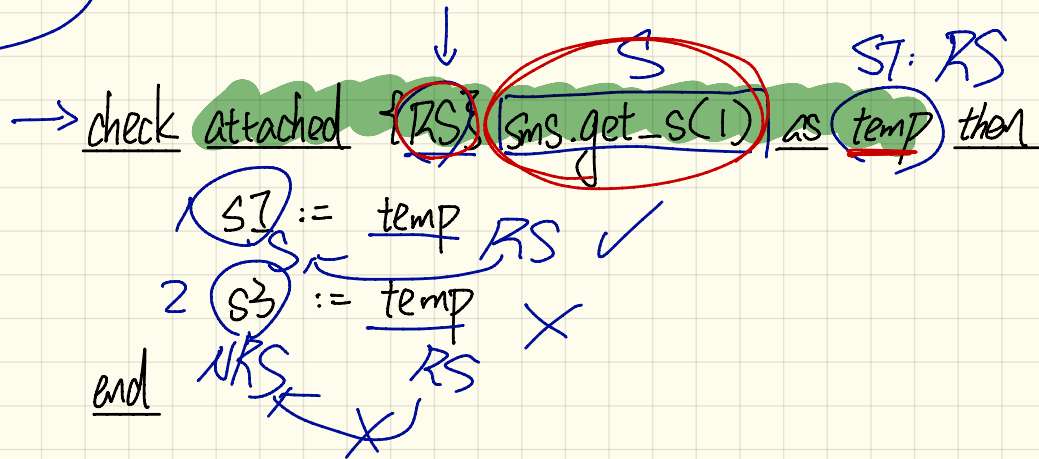 S ST: RS
→ check attached {RS} sms.get_s(1) as temp then
1 s1 := temp RS ✓
S
2 s3 := temp ×
NRS RS
end